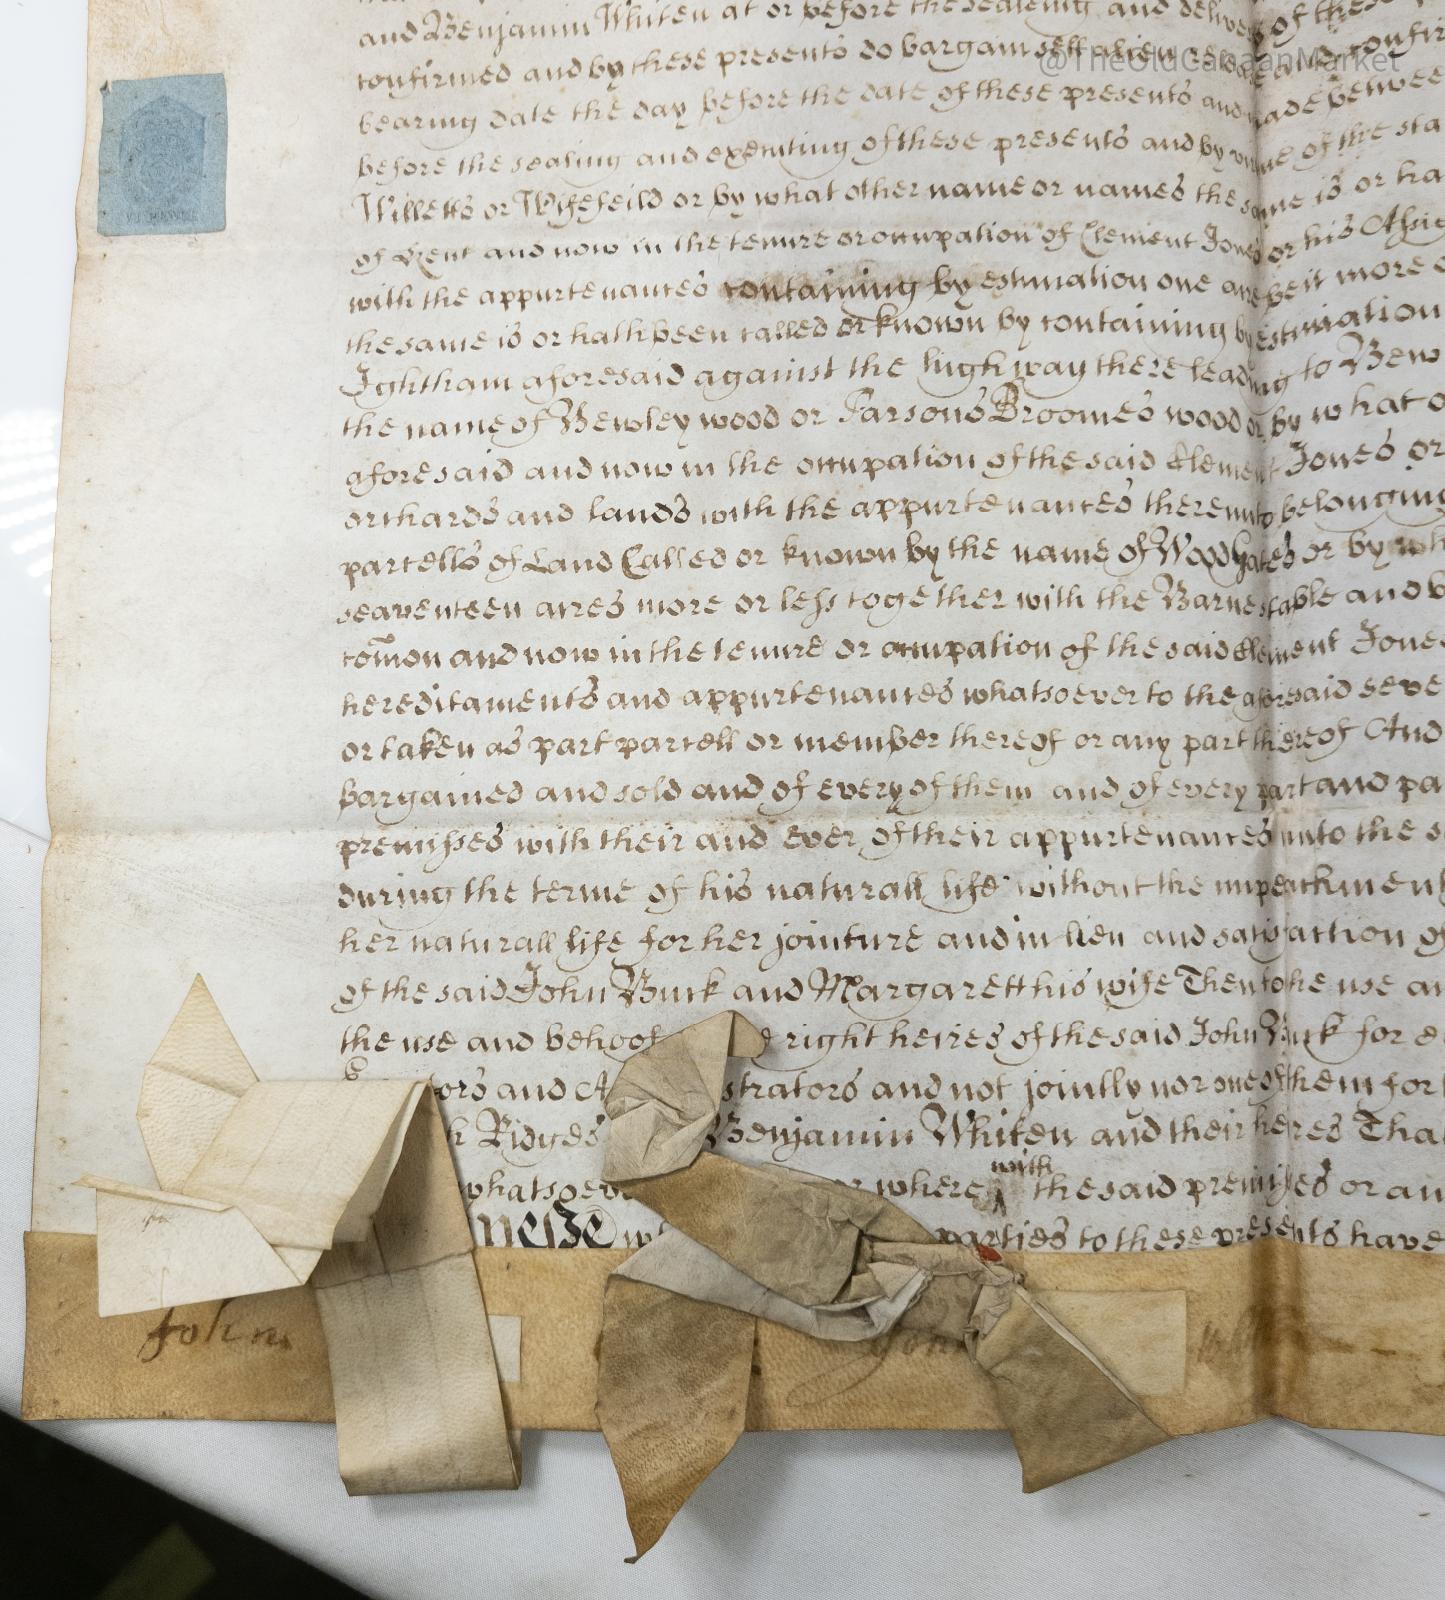 and Benjamin Whiten at or before the sealeing and delivery of these
@TheOldCanaanMarket
confirmed and by these presents do bargain sell alien and confir
bearing date the day before the date of these presents and made betwee
before the sealing and executing of these presents and by vertue of the sta
Willetts or Wifefeild or by what other name or names the same is or ha
of Kent and now in the tenure or occupation of Clement Jones or his Assig
with the appurtenances containing by estimation one acre be it more o
the same is or hath been called or known by containing by estimation
Ightham aforesaid against the high way there leading to Bew
the name of Bewley wood or Parsons Broomes wood or by what o
aforesaid and now in the occupation of the said Clement Jones or
orchards and lands with the appurtenances thereunto belonging
parcells of Land Called or known by the name of Woodgates or by wh
seaventeen acres more or less together with the Barne stable and b
comon and now in the tenure or occupation of the said Clement Jones
hereditaments and appurtenances whatsoever to the aforesaid seve
or taken as part parcell or member thereof or any part thereof And
bargained and sold and of every of them and of every part and pa
premisses with their and ever of their appurtenances unto the s
during the terme of his naturall life without the impeachment
her naturall life for her jointure and in lieu and satisfaction of
of the said John Buck and Margarett his wife Then to the use an
the use and behoof right heires of the said John Buck for e
tors and A strators and not jointly nor one of them for
Ridges Benjamin Whiten and their heires That
whatsoev or where with the said premisses or an
nesse parties to these presents have
John
John